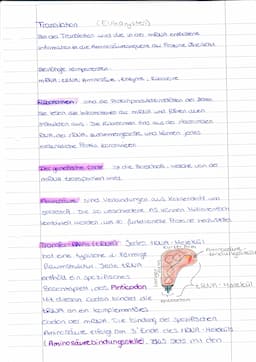 Translation (Eukaryoten)
Bei der Translation wird die in der mRNA enthaltene
Information in die Aminosäuresequenz der Proteine übersetzt
Benötigte Komponenten:
mRNA, tRNA, Aminosäure, Enzyme, Ribosome
Ribosomen: sind die Proteinproduktionsstätten der Zelle
Sie lesen die Informationen der mRNA und führen die
Translation aus. Die Ribosomen sind aus der ribosomalen
RNA, der rRNA, zusammengesetzt und können jedes
Protein
Der genetische Code: ist die Botschaft, welche von der
mRNA transportiert wird.
Aminosäuren: sind Verbindungen aus Kohlenstoff und
Die 20 verschiedene AS können
kombiniert werden, um so funktionelle Proteine herzustellen
Transfer-RNAs (tRNA): Jedes tRNA-Molekül
hat eine typische L-förmige
Raumstruktur. Jede tRNA
enthält ein spezifisches
Basentriplett, das Anticodon
Mit diesem Codon bindet die
tRNA an ein komplementäres
Codon der mRNA. Die Bindung der spezifischen
Aminosäure erfolgt am 3' Ende des tRNA-Moleküls
(Aminosäurebindungsstelle). Dies wird mit den
Aminosäure-
bindungsstelle
tRNA-Molekül
Anticodon